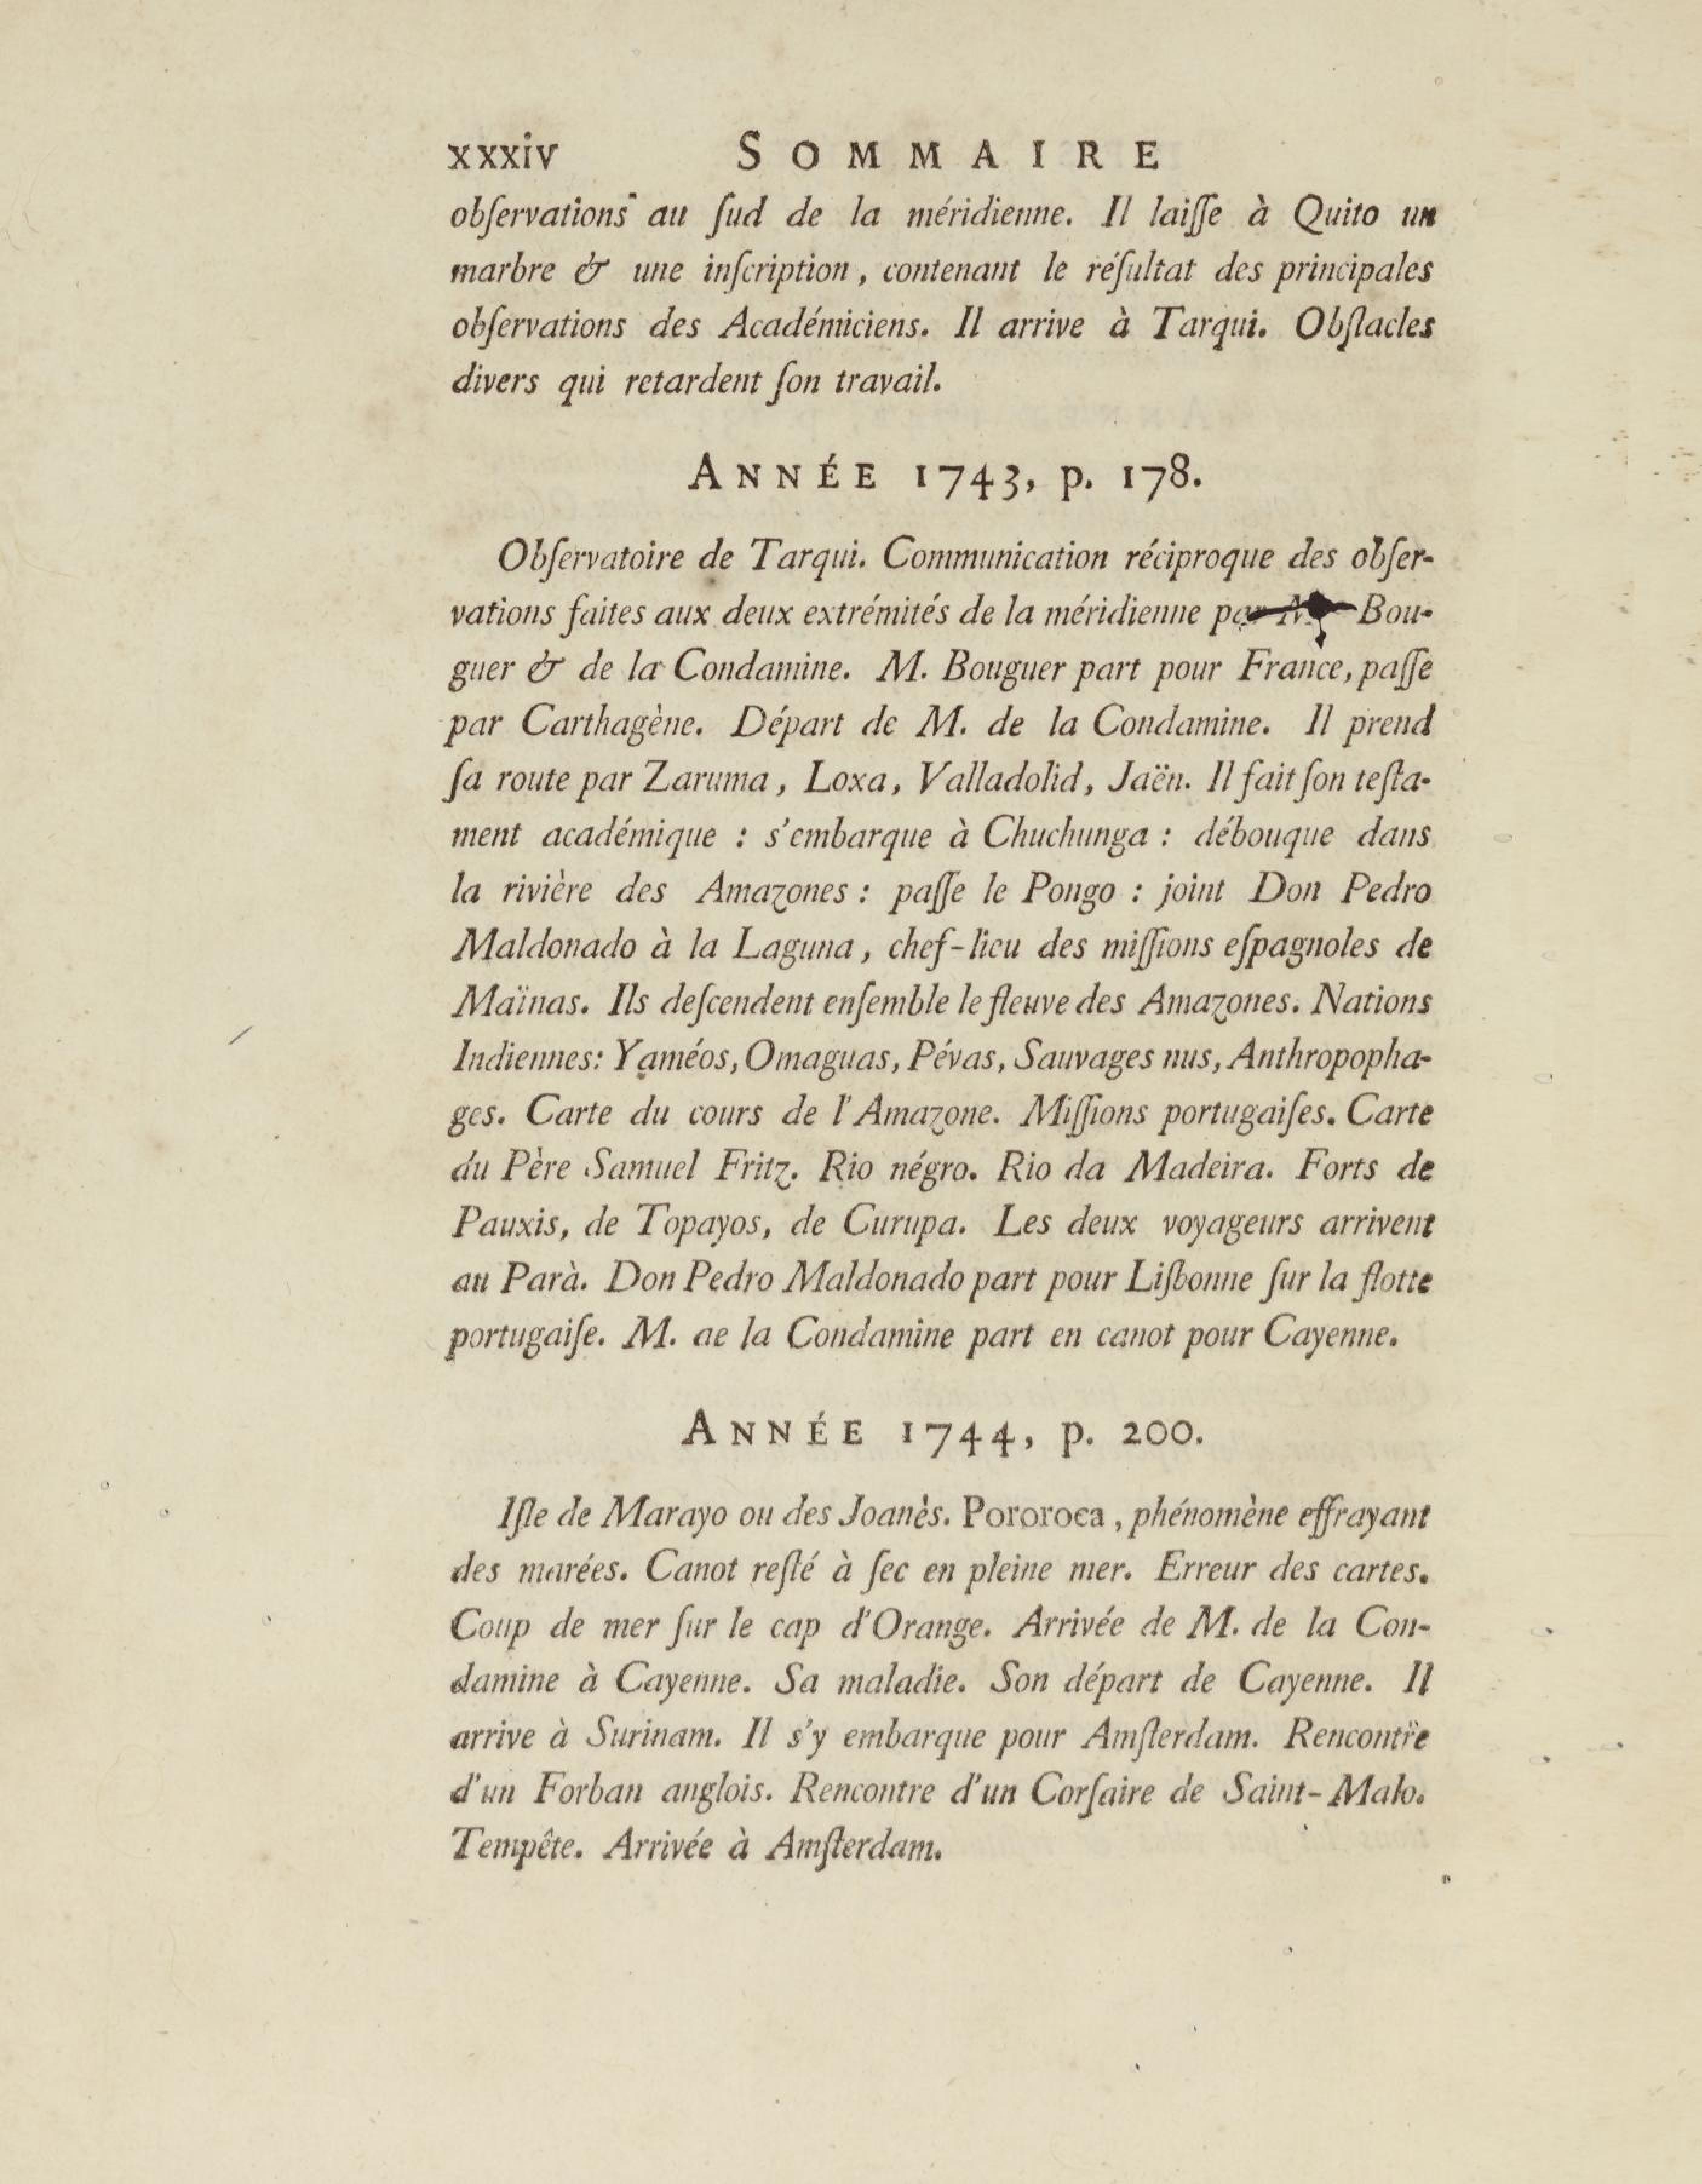 xxxiv SOMMAIRE
obſervations au ſud de la méridienne. Il laiſſe à Quito un
marbre & une inſcription, contenant le réſultat des principales
obſervations des Académiciens. Il arrive à Tarqui. Obſtacles
divers qui retardent ſon travail.
ANNÉE 1743, p. 178.
Obſervatoire de Tarqui. Communication réciproque des obſer-
vations faites aux deux extrémités de la méridienne par Bou-
guer & de la Condamine. M. Bouguer part pour France, paſſe
par Carthagène. Départ de M. de la Condamine. Il prend
ſa route par Zaruma, Loxa, Valladolid, Jaën. Il fait ſon teſta-
ment académique : s'embarque à Chuchunga : débouque dans
la rivière des Amazones : paſſe le Pongo : joint Don Pedro
Maldonado à la Laguna, chef-lieu des miſſions eſpagnoles de
Maïnas. Ils deſcendent enſemble le fleuve des Amazones. Nations
Indiennes: Yaméos, Omaguas, Pévas, Sauvages nus, Anthropopha-
ges. Carte du cours de l'Amazone. Miſſions portugaiſes. Carte
du Père Samuel Fritz. Rio négro. Rio da Madeira. Forts de
Pauxis, de Topayos, de Curupa. Les deux voyageurs arrivent
au Parà. Don Pedro Maldonado part pour Liſbonne ſur la flotte
portugaiſe. M. de la Condamine part en canot pour Cayenne.
ANNÉE 1744, p. 200.
Iſle de Marayo ou des Joanès. Pororoca, phénomène effrayant
des marées. Canot reſté à ſec en pleine mer. Erreur des cartes.
Coup de mer ſur le cap d'Orange. Arrivée de M. de la Con-
damine à Cayenne. Sa maladie. Son départ de Cayenne. Il
arrive à Surinam. Il s'y embarque pour Amſterdam. Rencontre
d'un Forban anglois. Rencontre d'un Corſaire de Saint-Malo.
Tempête. Arrivée à Amſterdam.